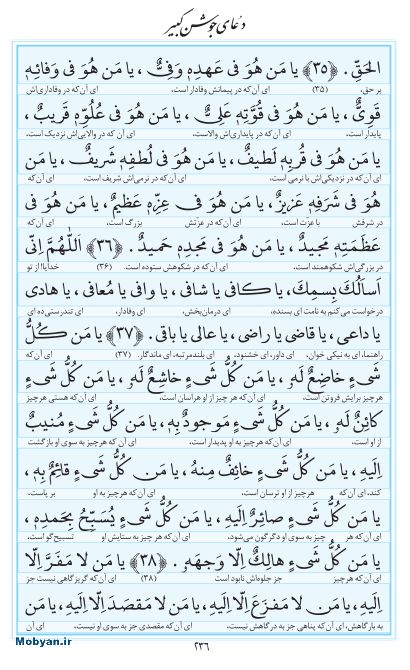 دعای جوشن کبیر
الحَقِّ. ﴿۳۵﴾ یا مَن هُوَ فی عَهدِهٖ وَفِیٌّ، یا مَن هُوَ فی وَفائِهٖ
بر حق، (۳۵) ای آن‌که در پیمانش وفادار است، ای آن‌که در وفاداری‌اش
قَوِیٌّ، یا مَن هُوَ فی قُوَّتِهٖ عَلِیٌّ، یا مَن هُوَ فی عُلُوِّهٖ قَریبٌ،
پایدار است، ای آن‌که در پایداری‌اش والاست، ای آن‌که در والایی‌اش نزدیک است،
یا مَن هُوَ فی قُربِهٖ لَطیفٌ، یا مَن هُوَ فی لُطفِهٖ شَریفٌ، یا مَن
ای آن‌که در نزدیکی‌اش با نرمی است، ای آن‌که در نرمی‌اش شریف است، ای آن‌که
هُوَ فی شَرَفِهٖ عَزیزٌ، یا مَن هُوَ فی عِزِّهٖ عَظیمٌ، یا مَن هُوَ فی
در شرفش با عزت است، ای آن‌که در عزتش بزرگ است، ای آن‌که
عَظَمَتِهٖ مَجیدٌ، یا مَن هُوَ فی مَجدِهٖ حَمیدٌ. ﴿۳۶﴾ اَللّٰهُمَّ اِنّی
در بزرگی‌اش شکوهمند است، ای آن‌که در شکوهش ستوده است. (۳۶) خدایا! از تو
اَسأَلُكَ بِسمِكَ، یا کافی یا شافی، یا وافی یا مُعافی، یا هادی
درخواست می‌کنم به نامت ای بسنده، ای درمان‌بخش، ای وفادار، ای تندرستی‌ده ای
یا داعی، یا قاضی یا راضی، یا عالی یا باقی. ﴿۳۷﴾ یا مَن کُلُّ
راهنما، ای به نیکی خوان، ای داور، ای خشنود، ای بلندمرتبه، ای ماندگار. (۳۷) ای آن‌که
شَیءٍ خاضِعٌ لَهٗ، یا مَن کُلُّ شَیءٍ خاشِعٌ لَهٗ، یا مَن کُلُّ شَیءٍ
هرچیز برایش فروتن است، ای آن‌که هر چیز از او هراسان است، ای آن‌که هستی هرچیز
کائِنٌ لَهٗ، یا مَن کُلُّ شَیءٍ مَوجودٌ بِهٖ، یا مَن کُلُّ شَیءٍ مُنیبٌ
از او است، ای آن‌که هرچیز به او پدیدار است، ای آن‌که هرچیز به سوی او بازگشت
اِلَیهِ، یا مَن کُلُّ شَیءٍ خائِفٌ مِنهُ، یا مَن کُلُّ شَیءٍ قائِمٌ بِهٖ،
کند، ای آن‌که هرچیز از او ترسان است، ای آن‌که هرچیز به او بر پاست،
یا مَن کُلُّ شَیءٍ صائِرٌ اِلَیهِ، یا مَن کُلُّ شَیءٍ یُسَبِّحُ بِحَمدِهٖ،
ای آن‌که هر چیز به سوی او دگرگون می‌شود، ای آن‌که هر چیز به ستایش او تسبیح‌گو است،
یا مَن کُلُّ شَیءٍ هالِكٌ اِلّا وَجهَهٗ. ﴿۳۸﴾ یا مَن لا مَفَرَّ اِلّا
ای آن‌که هرچیز جز جلوه‌اش نابود است (۳۸) ای آن‌که گریزگاهی نیست جز
اِلَیهِ، یا مَن لا مَفزَعَ اِلّا اِلَیهِ، یا مَن لا مَقصَدَ اِلّا اِلَیهِ، یا مَن
به بارگاهش، ای آن‌که پناهی جز به درگاهش نیست، ای آن‌که مقصدی جز به سوی او نیست، ای آن
۲۳۶
Mobyan.ir